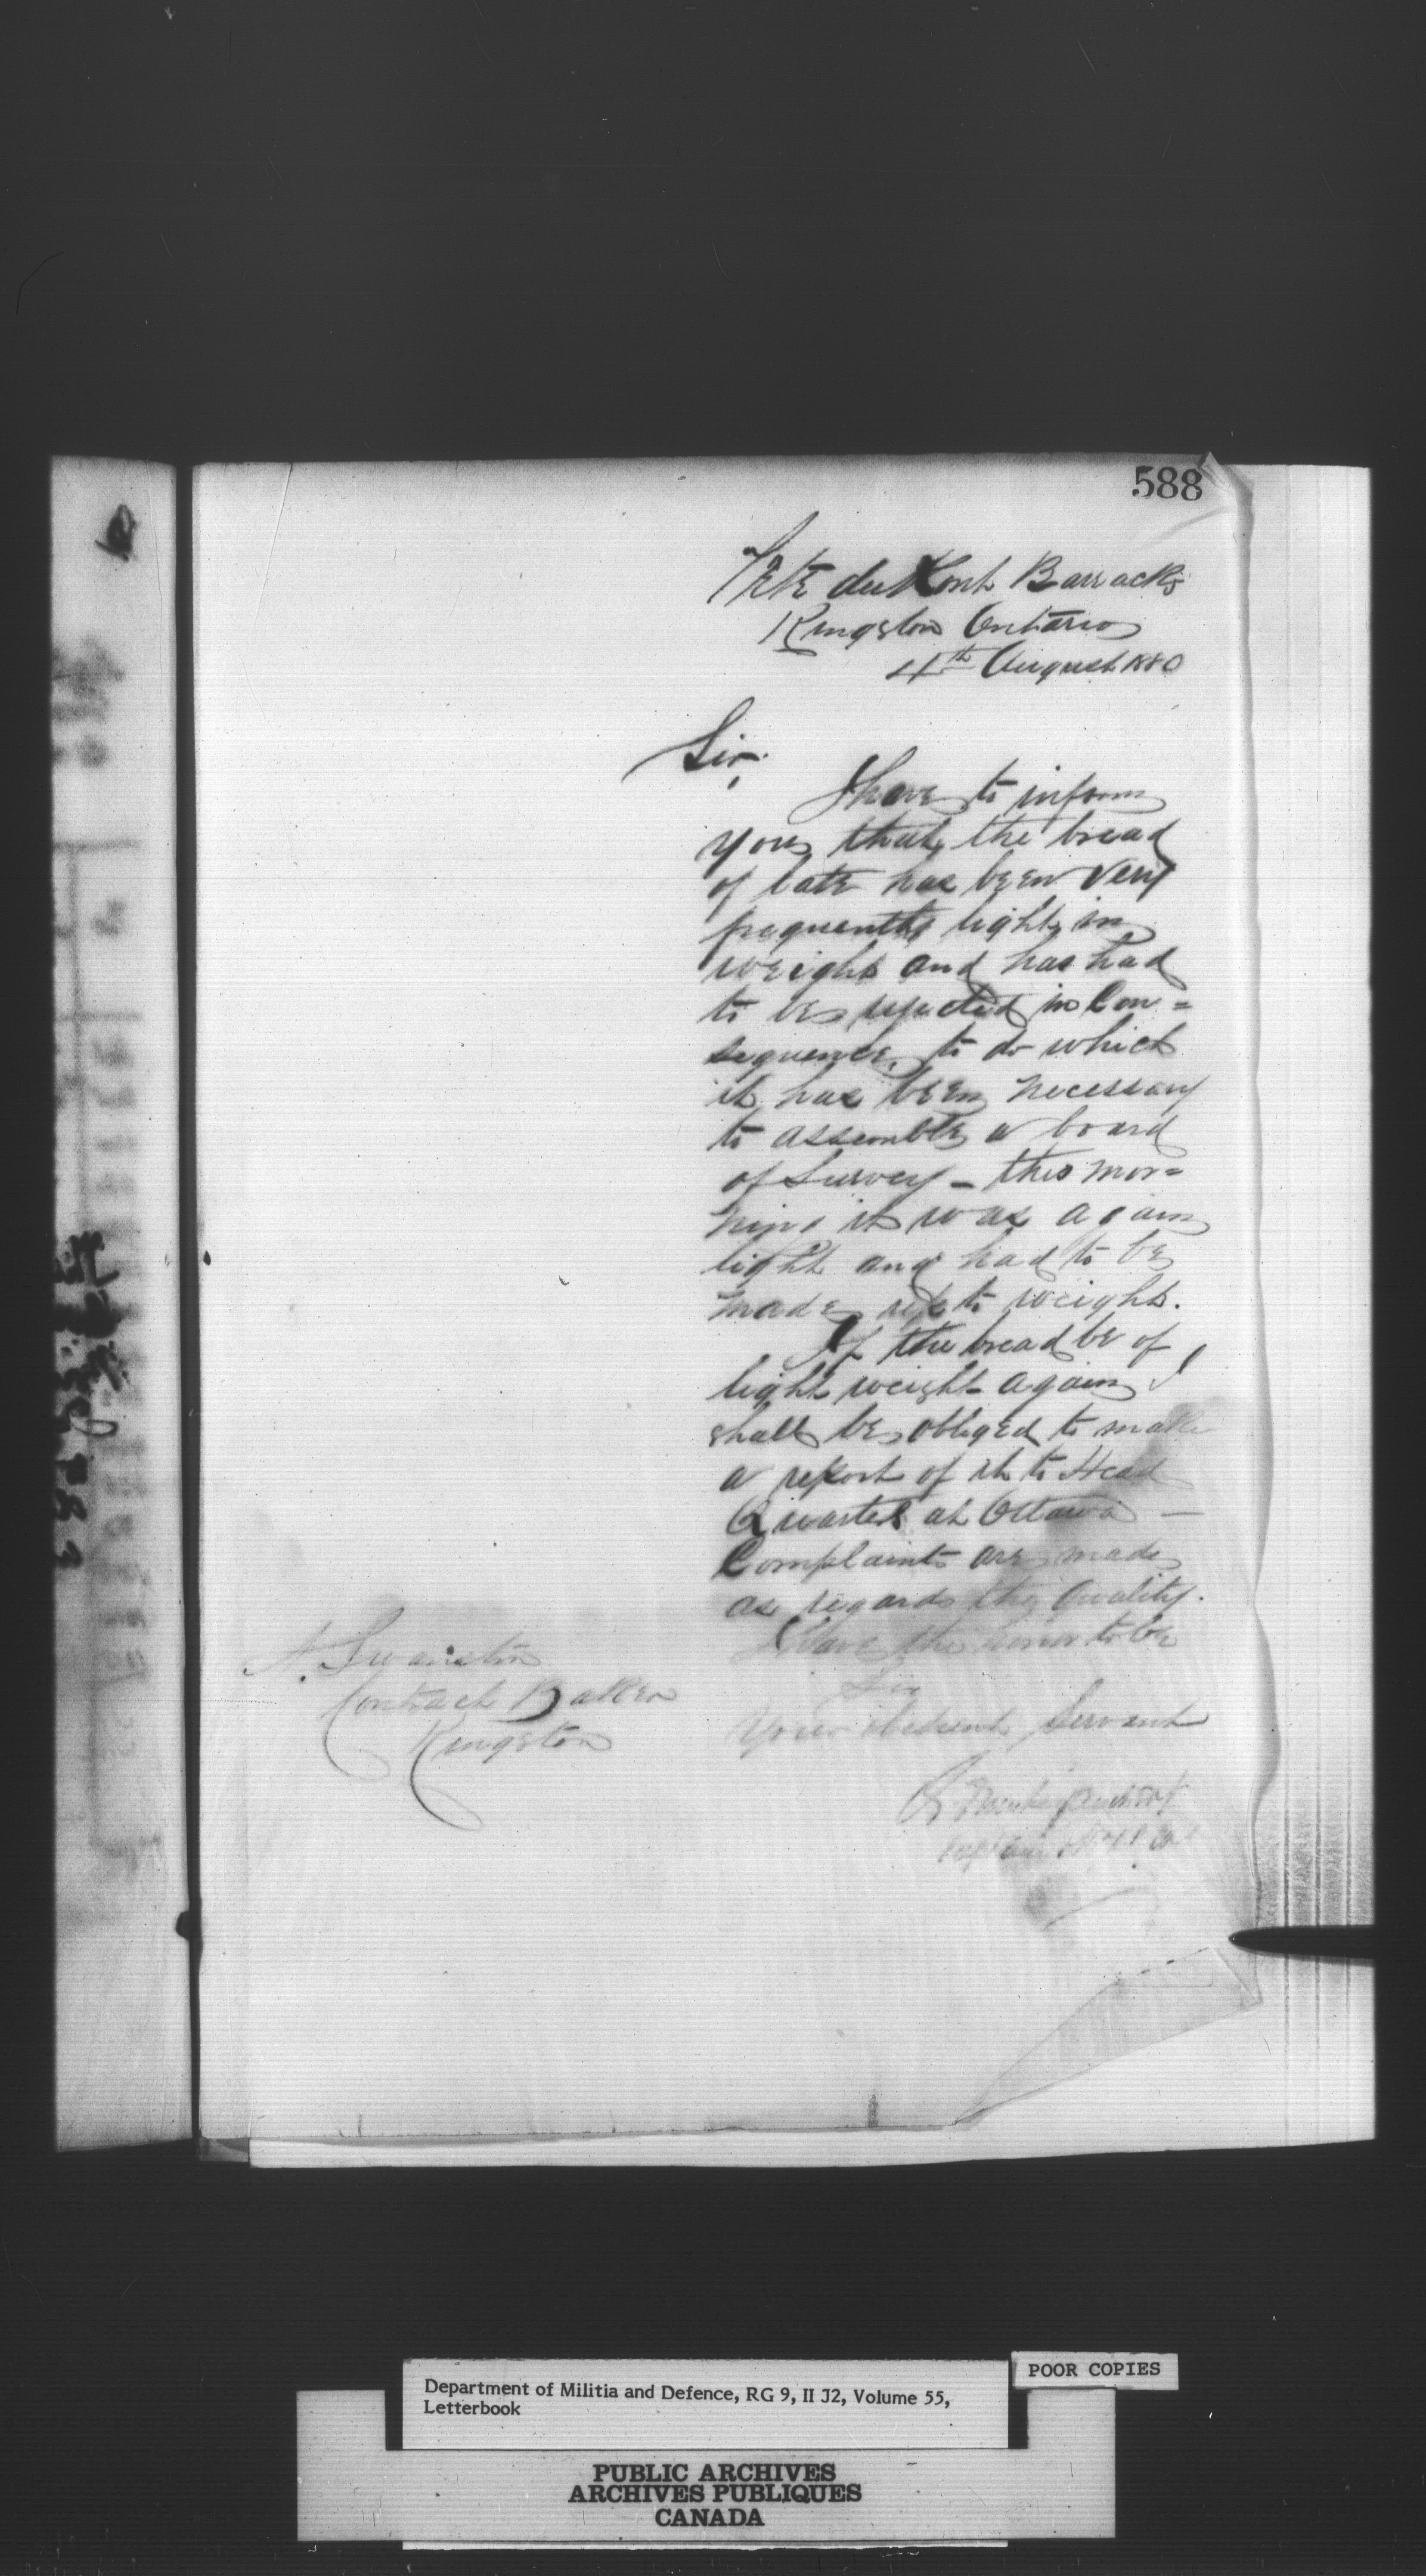 588
Tête du Pont Barracks
Kingston Ontario
4th August 1880
Sir,
I have to inform
you that the bread
of late has been very
frequently light in
weight and has had
to be rejected in Con=
sequence, to do which
it has been necessary
to assemble a board
of Survey - this mor=
ning it was again
light and had to be
made up to weight.
If the bread be of
light weight again I
shall be obliged to make
a report of it to Head
Quarters at Ottawa —
Complaints are made
as regards the quality.
I have the honor to be
Sir
Your obedient Servant
A. Swainston
Contract Baker
Kingston
Captain
Department of Militia and Defence, RG 9, II J2, Volume 55,
Letterbook
POOR COPIES
PUBLIC ARCHIVES
ARCHIVES PUBLIQUES
CANADA